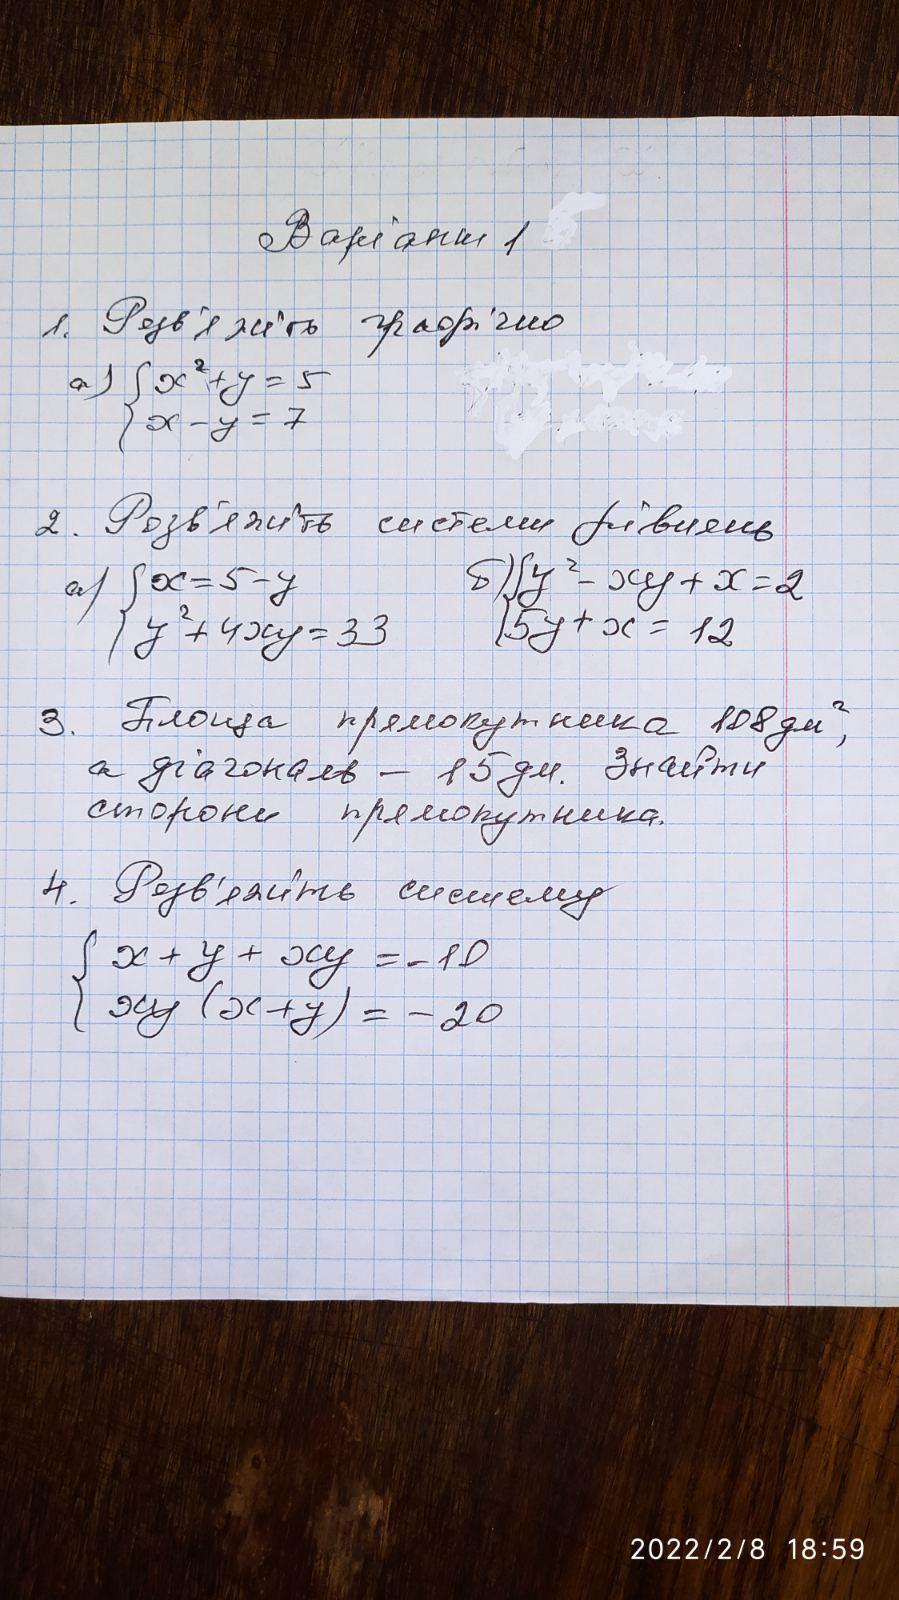 Варіант 1
1. Розв'яжіть графічно
а) { x² + y = 5
x - y = 7
2. Розв'яжіть системи рівнянь
а) { x = 5 - y
y² + 4xy = 33
б) { y² - xy + x = 2
5y + x = 12
3. Площа прямокутника 108 дм²,
а діагональ – 15 дм. Знайти
сторони прямокутника.
4. Розв'яжіть систему
{ x + y + xy = -10
xy (x + y) = -20
2022/2/8 18:59